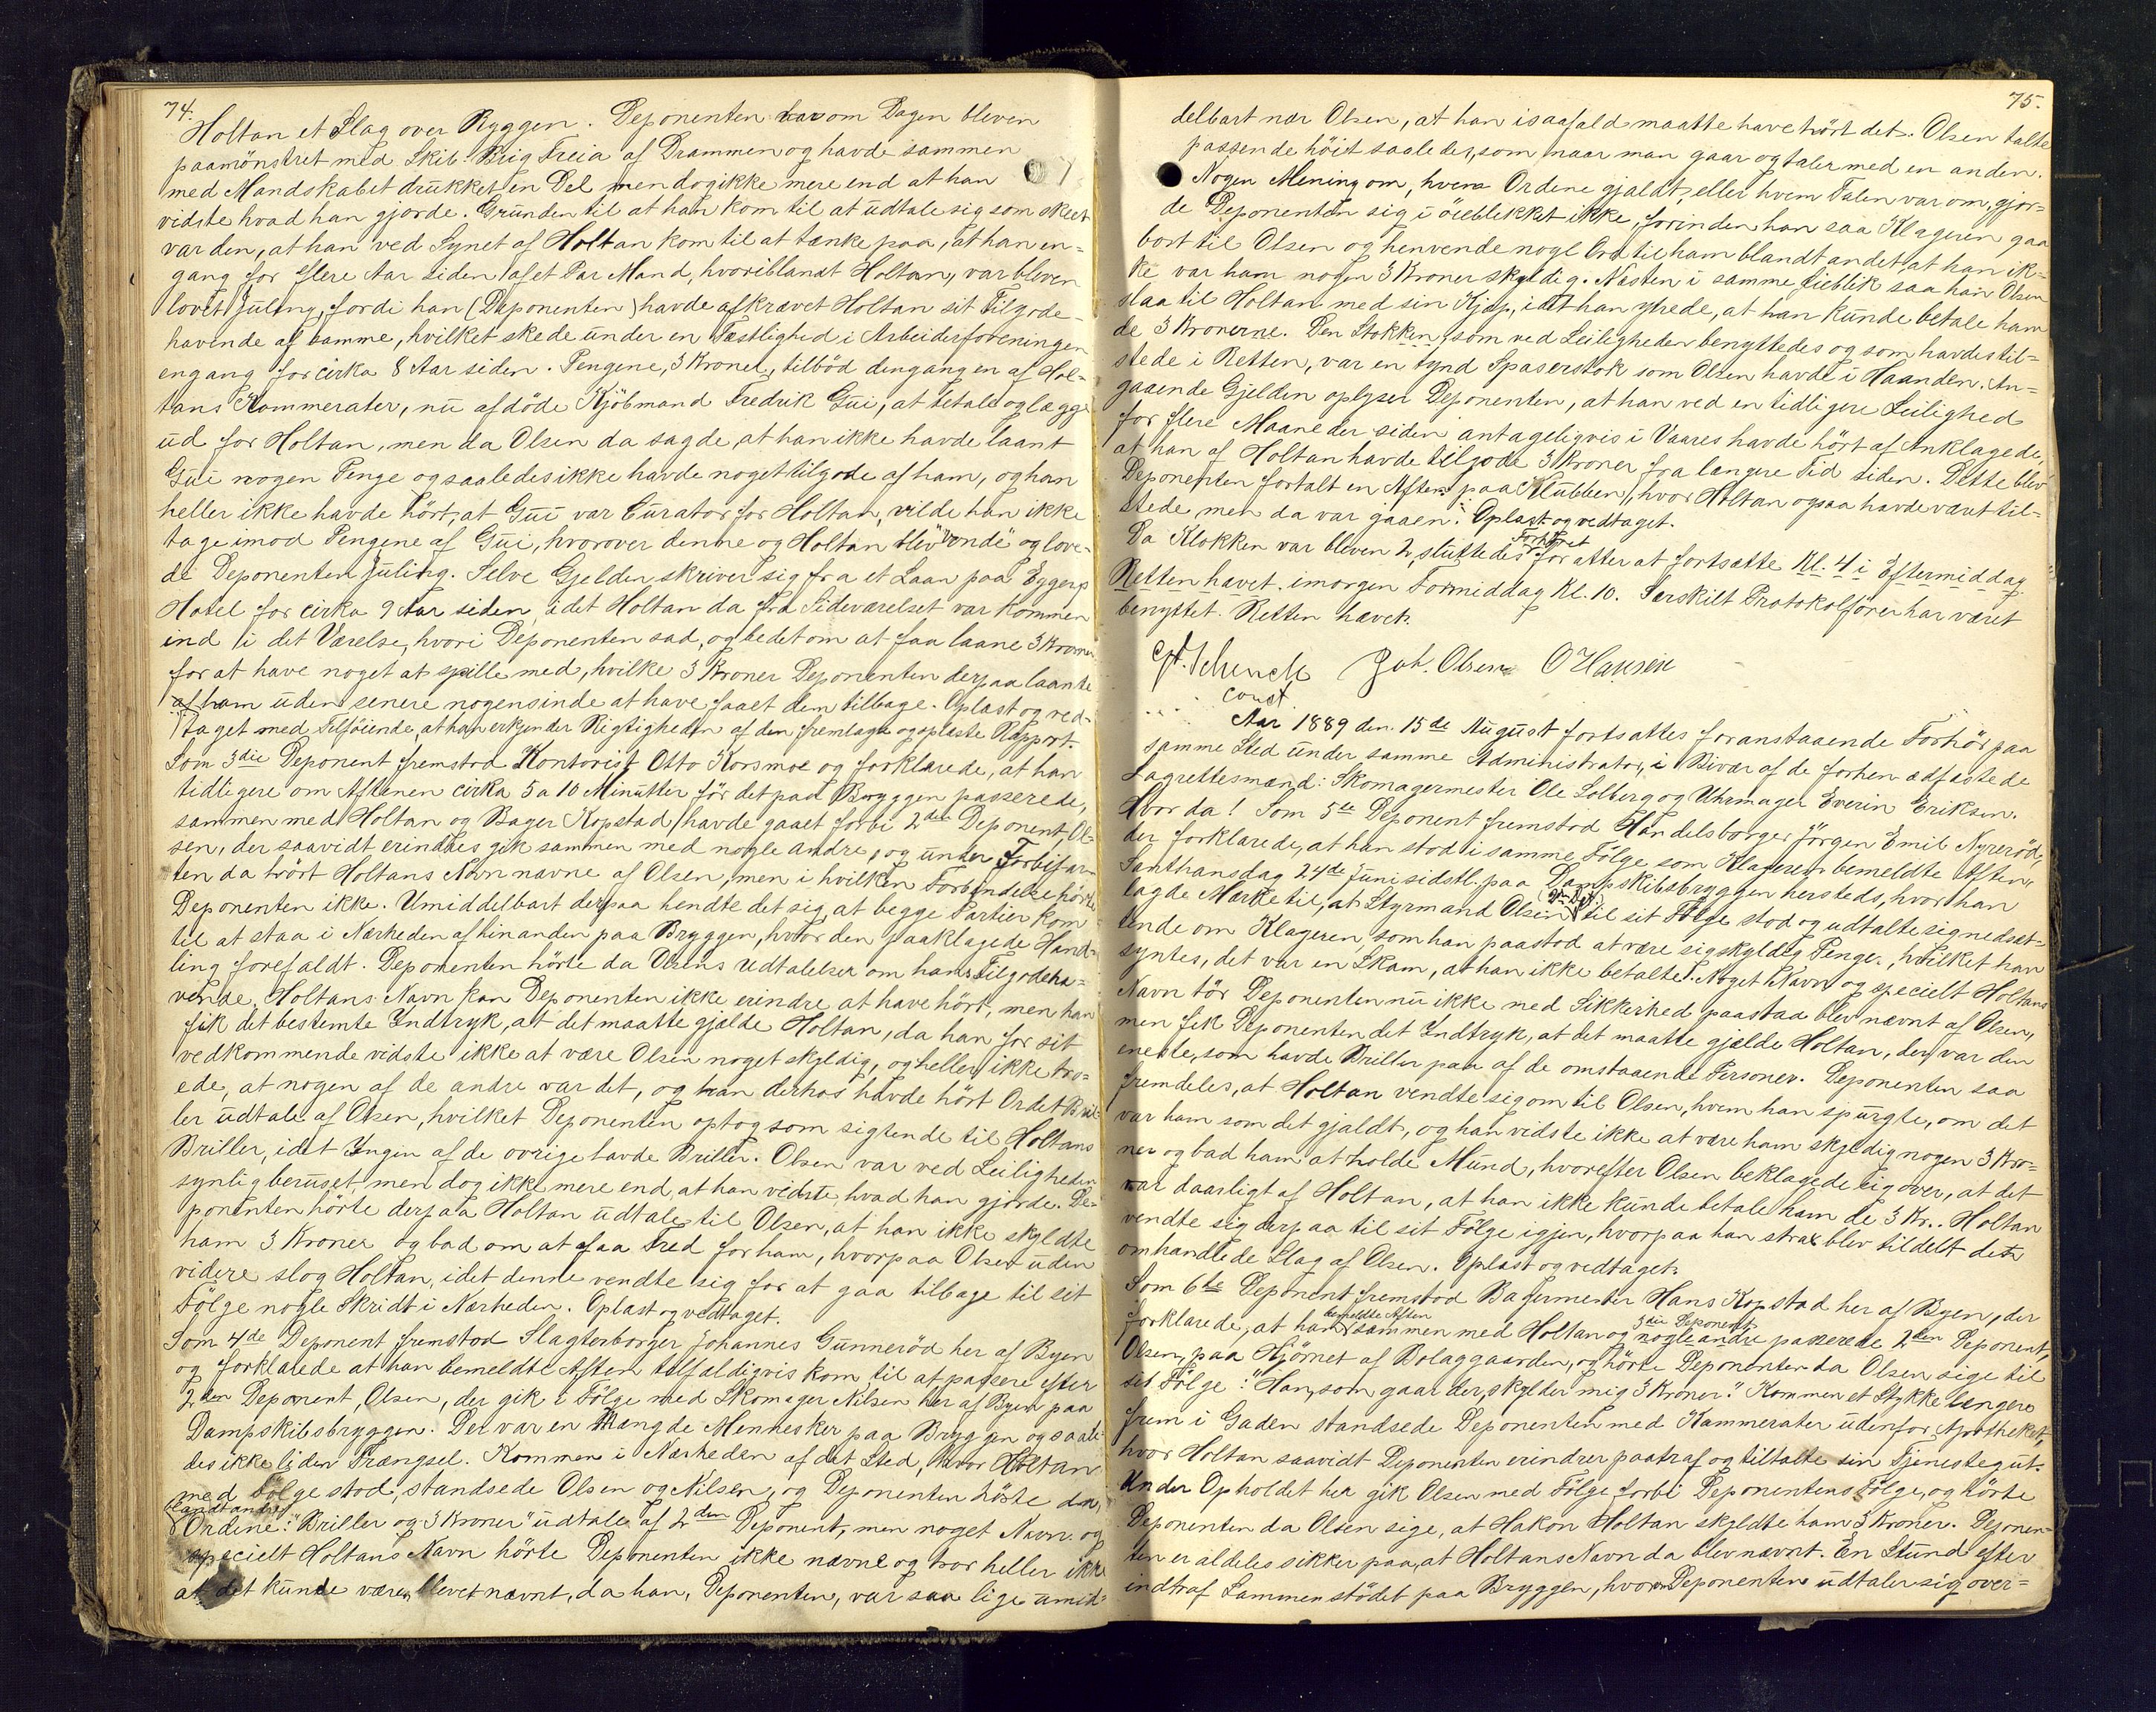 74.
Holtan et Slag over Ryggen. Deponenten var om Dagen bleven
paamönstret med Skib. Brig Freia af Drammen og havde sammen
med Mandskabet drukket en Del men dog ikke mere end at han
vidste hvad han gjorde. Grunden til at han kom til at udtale sig som skeet
var den, at han ved Synet af Holtan kom til at tænke paa, at han en-
gang for flere Aar siden af et Par Mænd, hvoriblandt Holtan, var bleven
lovet Juling, fordi han (Deponenten) havde afkrævet Holtan sit Tilgode-
havende af samme, hvilket skede under en Festlighed i Arbeiderforeningen
engang for cirka 8 Aar siden. Pengene, 3 Kroner, tilböd dengang en af Hol-
tans Kammerater, nu afdöde Kjöbmand Fredrik Gui, at betale og lægge
ud for Holtan, men da Olsen da sagde, at han ikke havde laant
Gui nogen Penge og saaledes ikke havde noget tilgode af ham, og han
heller ikke havde hört, at Gui var Curator for Holtan, vilde han ikke
tage imod Pengene af Gui, hvorover denne og Holtan blev "vonde" og love-
de Deponenten Juling. Selve Gjelden skriver sig fra et Laan paa Eggers
Hotel for cirka 9 Aar siden, idet Holtan da fra Sideværelset var kommen
ind i det Værelse, hvori Deponenten sad, og bedet om at faa laane 3 Kroner
for at have noget at spille med, hvilke 3 Kroner Deponenten derpaa laante
af ham uden senere nogensinde at have faaet dem tilbage. Oplæst og ved-
taget med Tilföiende, at han erkjender Rigtigheden af den fremlagte og oplæste Rapport.
Som 3die Deponent fremstod Kontorist Otto Korsmoe og forklarede, at han
tidligere om Aftenen cirka 5 a 10 Minutter för det paa Bryggen passerede,
sammen med Holtan og Bager Kopstad havde gaaet forbi 2den Deponent, Ol-
sen, der saavidt erindres gik sammen med nogle andre, og under Forbifar-
ten da hört Holtans Navn nævne af Olsen, men i hvilken Forbindelse hörte
Deponenten ikke. Umiddelbart derpaa hendte det sig, at begge Partier kom
til at staa i Nærheden af hinanden paa Bryggen, hvor den paaklagede Hand-
ling forefaldt. Deponenten hörte da Olsens Udtalelser om hans Tilgodeha-
vende. Holtans Navn kan Deponenten ikke erindre at have hört, men han
fik det bestemte Indtryk, at det maatte gjælde Holtan, da han for sit
vedkommende vidste ikke at være Olsen noget skyldig, og heller ikke tro-
ede, at nogen af de andre var det, og han derhos havde hört Ordet Bril-
ler udtale af Olsen, hvilket Deponenten optog som sigtende til Holtans
Briller, idet Ingen af de övrige havde Briller. Olsen var ved Leiligheden
synlig beruset, men dog ikke mere end, at han vidste, hvad han gjorde. De-
ponenten hörte derpaa Holtan udtale til Olsen, at han ikke skyldte
ham 3 Kroner og bad om at faa Fred for ham, hvorpaa Olsen uden
videre slog Holtan, idet denne vendte sig for at gaa tilbage til sit
Fölge nogle Skridt i Nærheden. Oplæst og vedtaget.
Som 4de Deponent fremstod Slagterborger Johannes Gunneröd her af Byen
og forklarede at han bemeldte Aften tilfældigvis kom til at passere efter
2den Deponent, Olsen, der gik i Fölge med Skomager Nilsen her af Byen paa
Dampskibsbryggen. Der var en Mængde Mennesker paa Bryggen og saale-
des ikke liden Trængsel. Kommen i Nærheden af det Sted, hvor Holtan
med Fölge stod, standsede Olsen og Nilsen, og Deponenten hörte da,
blandt andet
Ordene: "Briller og 3 Kroner" udtale af 2den Deponent, men noget Navn og
specielt Holtans Navn hörte Deponenten ikke nævne og tror heller ikke
at det kunde være blevet nævnt, da han, Deponenten, var saa lige umid-
75.
delbart nær Olsen, at han i saafald maatte have hört det. Olsen talte
passende höit saaledes, som naar man gaar og taler med en anden.
Nogen Mening om, hvem Ordene gjaldt, eller hvem Talen var om, gjor-
de Deponenten sig i öieblikket ikke, förinden han saa Klageren gaa
bort til Olsen og henvende nogle Ord til ham blandt andet, at han ik-
ke var ham nogen 3 Kroner skyldig. Næsten i samme Öieblik saa han Olsen
slaa til Holtan med sin Kjæp, idet han yttrede, at han kunde betale ham
de 3 Kronerne. Den Stokken, som ved Leiligheden benyttedes og som havdes til-
stede i Retten, var en tynd Spaserstok som Olsen havde i Haanden. An-
gaaende Gjelden oplyser Deponenten, at han ved en tidligere Leilighed
for flere Maaneder siden antageligvis i Vaares havde hört af Anklagede,
at han af Holtan havde tilgode 3 Kroner fra længere Tid siden. Dette blev
Deponenten fortalt en Aften paa Klubben, hvor Holtan ogsaa havde været til-
stede, men da var gaaen. Oplæst og vedtaget.
Forhöret
Da Klokken var bleven 2, sluttedes for atter at fortsætte Kl. 4 i Eftermiddag
Retten hævet. imorgen Formiddag Kl. 10. Særskilt Protokolförer har været
benyttet. Retten hævet.
Joh. Olsen O Hansen
const.
Aar 1889 den 15de August fortsattes foranstaaende Forhör paa
samme Sted under samme Administrator, i Bivær af de forhen edfæstede
Lagrettesmænd: Skomagermester Ole Solberg og Uhrmager Everin Eriksen.
Hvor da! Som 5te Deponent fremstod Handelsborger Jörgen Emil Nyreröd,
der forklarede, at han stod i samme Fölge, som Klageren bemeldte Aften,
Santhansdag 24de Juni sidstl. paa Dampskibsbryggen hersteds, hvor han
2den Dep.
lagde Mærke til, at Styrmand Olsen til sit Fölge stod og udtalte sig nedsæt-
tende om Klageren, som han paastod at være sig skyldig Penge, hvilket han
syntes, det var en Skam, at han ikke betalte. Noget Navn og specielt Holtans
Navn tör Deponenten nu ikke med Sikkerhed paastaa blev nævnt af Olsen,
men fik Deponenten det Indtryk, at det maatte gjælde Holtan, der var den
eneste, som havde Briller paa af de omstaaende Personer. Deponenten saa
fremdeles, at Holtan vendte sig om til Olsen, hvem han spurgte, om det
var ham som det gjaldt, og han vidste ikke at være ham skyldig nogen 3 Kro-
ner og bad ham at holde Mund, hvorefter Olsen beklagede sig over, at det
var daarligt af Holtan, at han ikke kunde betale ham de 3 Kr.. Holtan
vendte sig derpaa til sit Fölge igjen, hvorpaa han strax blev tildelt det
omhandlede Slag af Olsen. Oplæst og vedtaget.
Som 6te Deponent fremstod Bagermester Hans Kopstad her af Byen, der
bemeldte Aften 3die Deponent
forklarede, at han sammen med Holtan og nogle andre passerede 2den Deponent,
Olsen, paa Hjörnet af Bolaggaarden, og hörte Deponenten da Olsen sige til
sit Fölge: "Han, som gaar der, skylder mig 3 Kroner." Kommen et Stykke længere
frem i Gaden standsede Deponenten med Kammerater udenfor Apotheket,
hvor Holtan saavidt Deponenten erindrer paatraf og tiltalte sin Tjenestegut.
Under Opholdet her gik Olsen med Fölge forbi Deponentens Fölge, og hörte
Deponenten da Olsen sige, at Hakon Holtan skyldte ham 3 Kroner. Deponen-
ten er aldeles sikker paa, at Holtans Navn da blev nævnt. En Stund efter
indtraf Sammenstödet paa Bryggen, hvor Deponenten udtaler sig over-